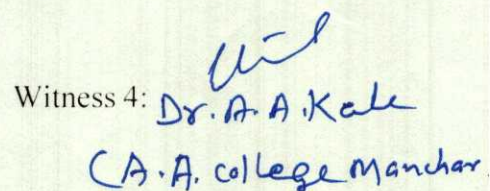 Witness 4: Dr. A. A. Kale
(A. A. college Manchar.